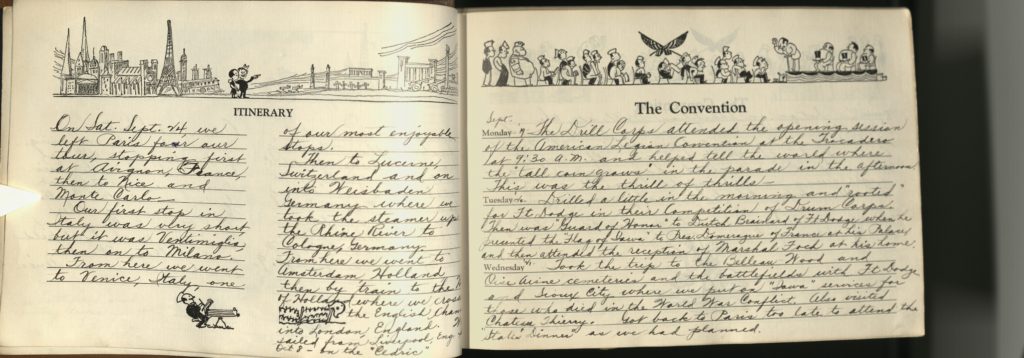 ITINERARY
On Sat. Sept. 24, we
left Paris for our
tour, stopping first
at Avignon, France,
then to Nice and
Monte Carlo.
Our first stop in
Italy was very short
but it was Ventimiglia,
then on to Milano.
From here we went
to Venice, Italy, one
of our most enjoyable
stops.
Then to Lucerne,
Switzerland and on
into Weisbaden
Germany where we
took the steamer up
the Rhine River to
Cologne, Germany.
From here we went to
Amsterdam, Holland
then by train to the
of Holland where we cross
the English Chan
into London England.
sailed from Liverpool, Eng.
Oct 8 - on the "Cedric"
The Convention
Sept.
Monday - The Drill Corps attended the opening session
of the American Legion Convention at the Trocadero
at 9:30 A.M. and helped tell the world where
the "tall corn grows" in the parade in the afternoon.
This was the thrill of thrills -
Tuesday - Drilled a little in the morning and "rooted"
for Ft. Dodge in their Competition of Drum Corps.
Then was "Guard of Honor" to Dutch Brainard of Ft. Dodge when he
presented the "Flag of Iowa" to Pres. Domergue of France at his Palace
and then attended the reception of Marshal Foch at his home.
Wednesday - Took the trip to the Belleau Wood and
Oise Aisne cemeteries and the battlefields with Ft. Dodge
and Sioux City, where we put on "Iowa" services for
those who died in the World War Conflict. Also visited
Chateau Thierry. Got back to Paris too late to attend the
"State Dinner" as we had planned.